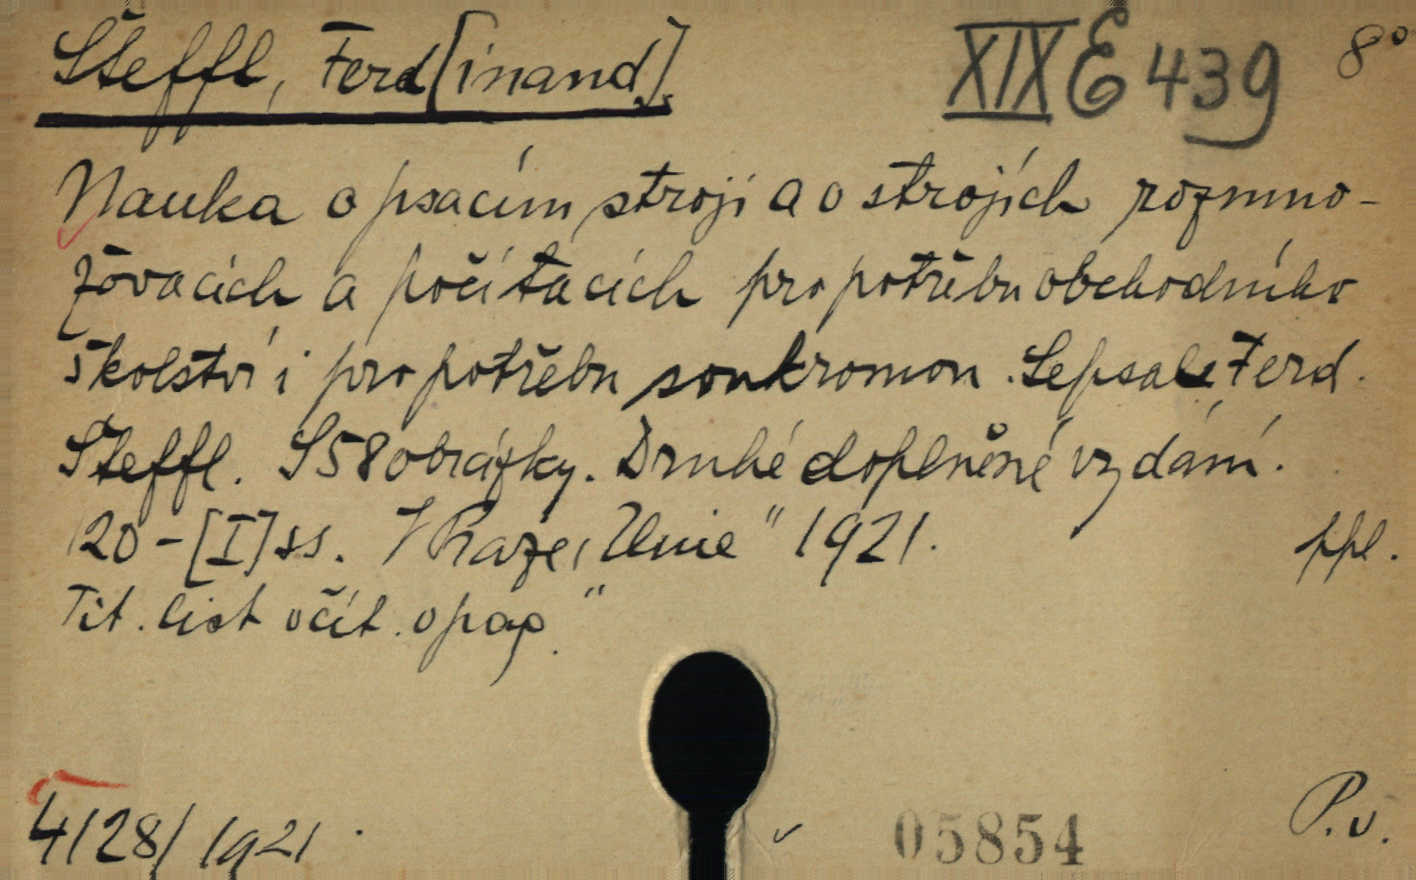 Šteffl, Ferd[inand]. XIX E 439 8°
Nauka o psacím stroji a o strojích rozmno-
žovacích a počítacích pro potřebu obchodního
školství i pro potřebu soukromou. Sepsal Ferd.
Šteffl. S 58 obrázky. Druhé doplněné vydání.
120-[I] ss. V Praze, „Unie" 1921. ppl.
Tit. list očít. o pap.
4128/1921. 05854 P.v.